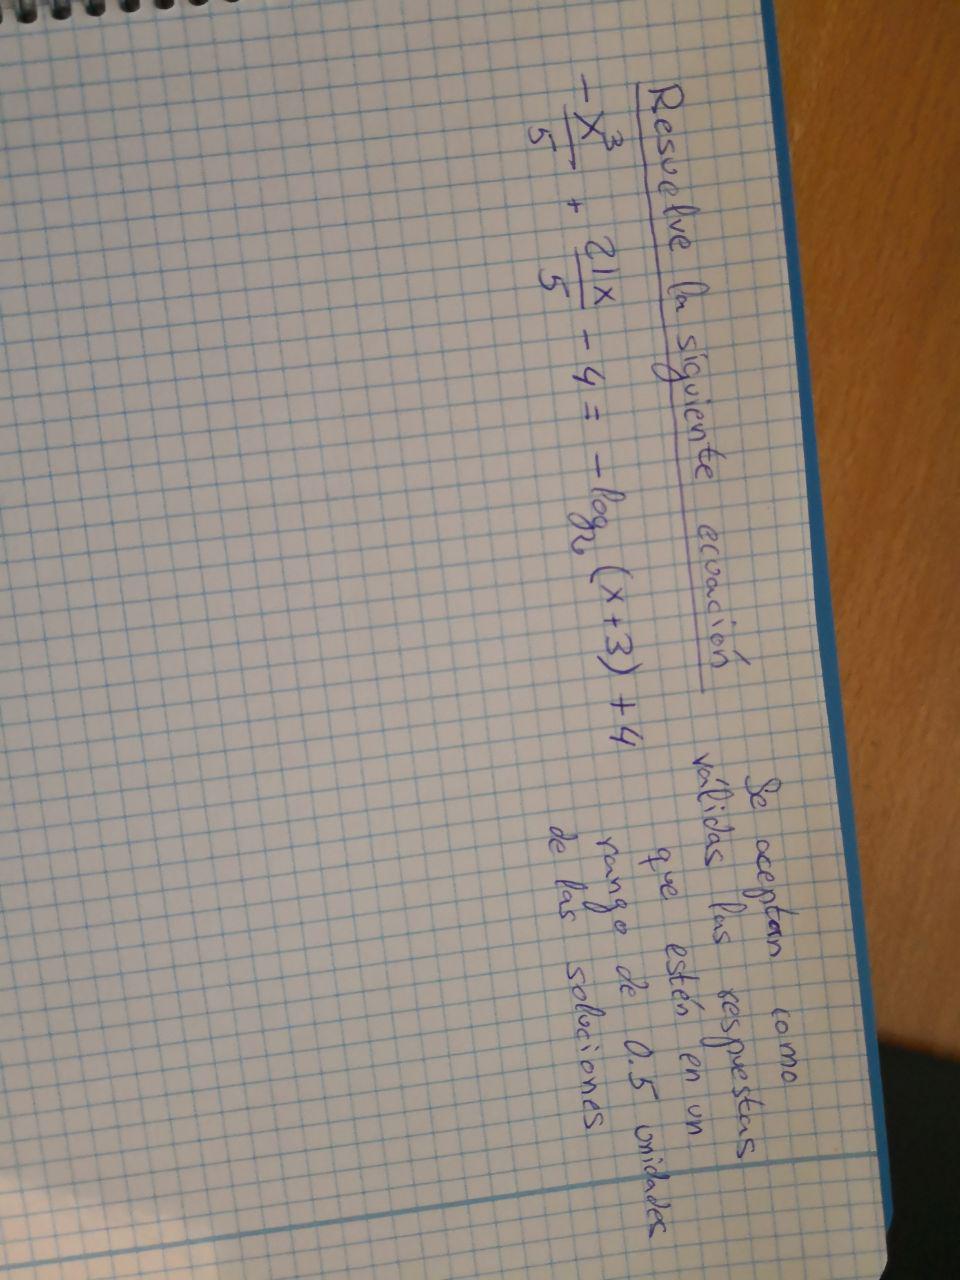 Resuelve la siguiente ecuación
-x³/5 + 21x/5 - 4 = -log₂(x+3)+4
Se aceptan como
válidas las respuestas
que estén en un
rango de 0.5 unidades
de las soluciones